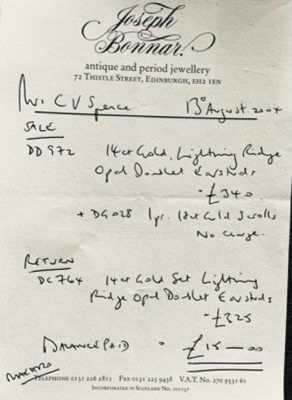 Joseph
Bonnar
antique and period jewellery
72 Thistle Street, Edinburgh, EH2 1EN
Mrs C V Spence 13th August 2004
SALE
DD972 14ct Gold, Lightning Ridge
Opal Doublet Earstuds
£340.
+ DG028 1pr. 18ct Gold Scrolls
No Charge.
RETURN
DC764 14ct Gold Set Lightning
Ridge Opal Doublet Earstuds
£325
BALANCE PAID £15-00
Telephone 0131 226 2811 Fax 0131 225 9438 V.A.T. No. 270 9331 61
Incorporated in Scotland No. 101137